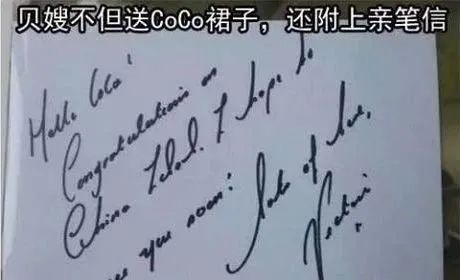 贝嫂不但送CoCo裙子，还附上亲笔信
Hello CoCo!
Congratulations on
China I hope to
you soon!
Lots of love,
Victoria